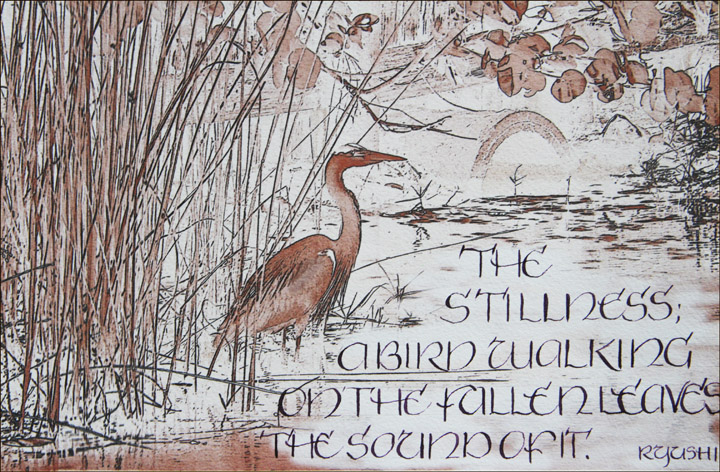 THE
STILLNESS;
A BIRD WALKING
ON THE FALLEN LEAVES
THE SOUND OF IT.
RYUSHI